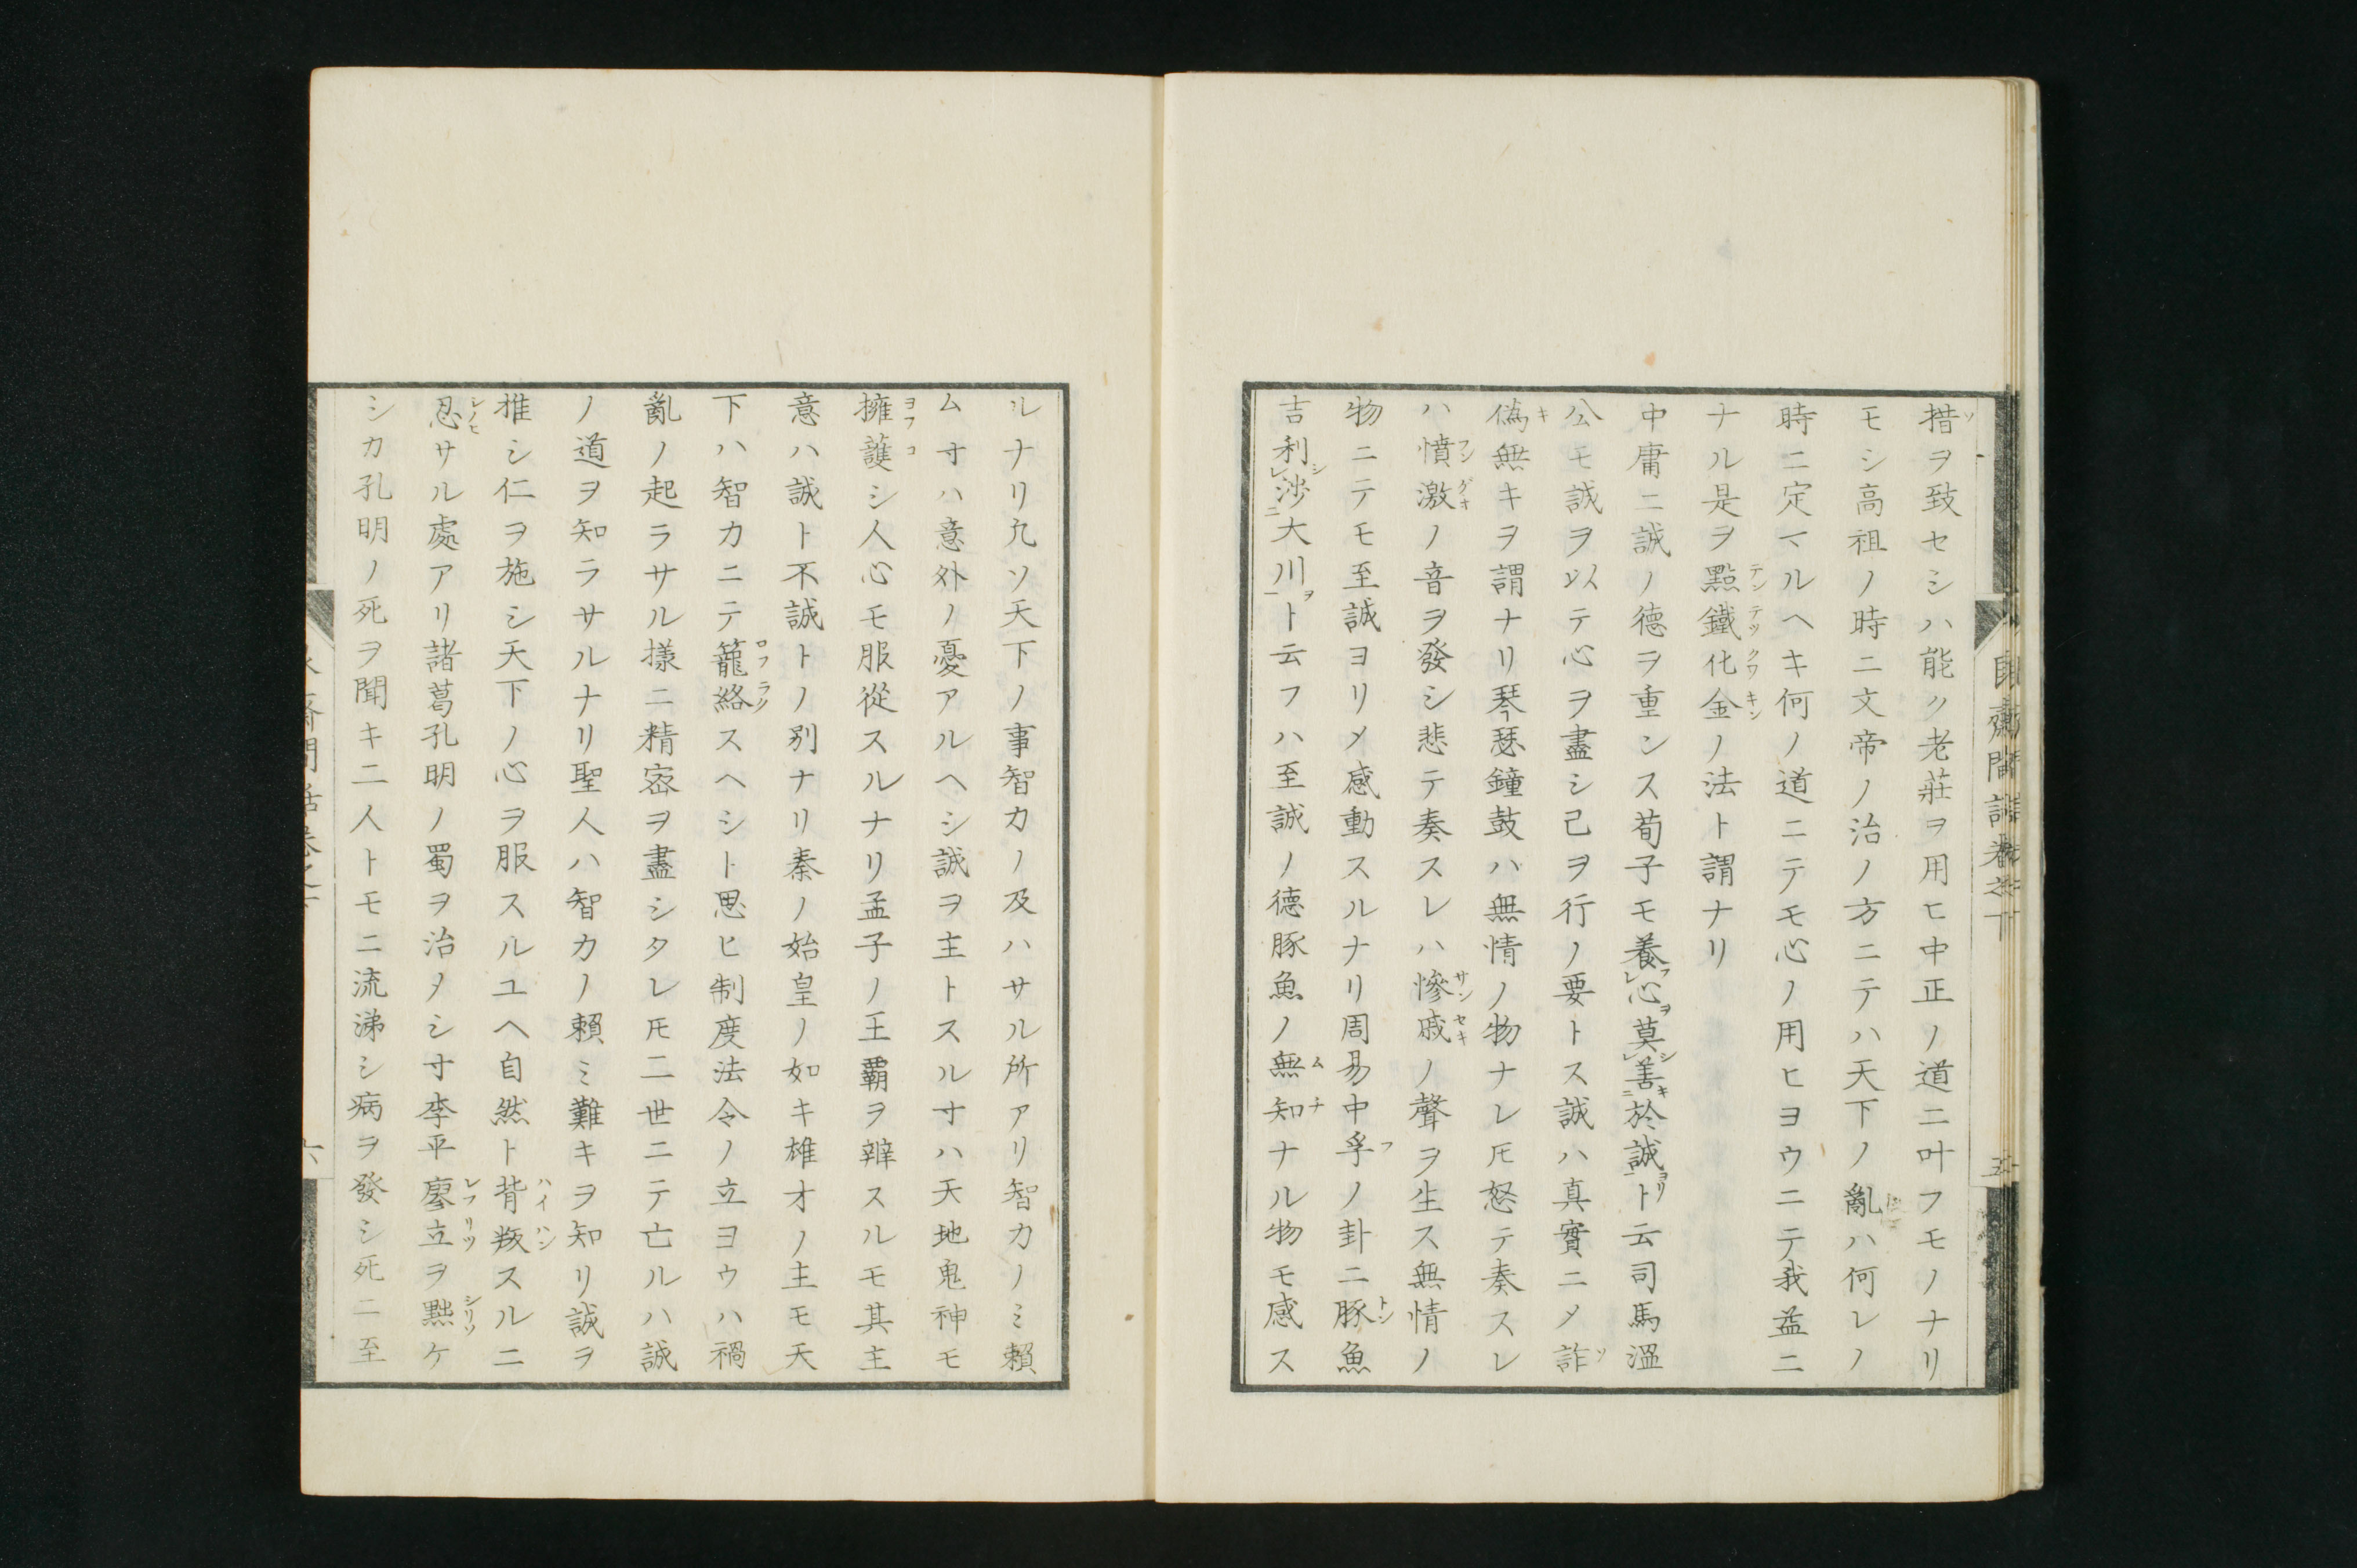 措ヲ致セシハ能ク老莊ヲ用ヒ中正ノ道ニ叶フモノナリ
モシ高祖ノ時ニ文帝ノ治ノ方ニテハ天下ノ亂ハ何レノ
時ニ定マルヘキ何ノ道ニテモ心ノ用ヒヨウニテ我益ニ
ナル是ヲ點鐵化金ノ法ト謂ナリ
中庸ニ誠ノ德ヲ重ンス荀子モ養心莫善於誠ト云司馬溫
公モ誠ヲ以テ心ヲ盡シ己ヲ行ノ要トス誠ハ真實ニメ詐
偽無キヲ謂ナリ琴瑟鐘鼓ハ無情ノ物ナレ𪜈怒テ奏スレ
ハ憤激ノ音ヲ發シ悲テ奏スレハ慘戚ノ聲ヲ生ス無情ノ
物ニテモ至誠ヨリメ感動スルナリ周易中孚ノ卦ニ豚魚
吉利涉大川ト云フハ至誠ノ德豚魚ノ無知ナル物モ感ス
ルナリ凡ソ天下ノ事智力ノ及ハサル所アリ智力ノミ賴
ム寸ハ意外ノ憂アルヘシ誠ヲ主トスル寸ハ天地鬼神モ
擁護シ人心モ服從スルナリ孟子ノ王覇ヲ辨スルモ其主
意ハ誠ト不誠トノ別ナリ秦ノ始皇ノ如キ雄才ノ主モ天
下ハ智力ニテ籠絡スヘシト思ヒ制度法令ノ立ヨウハ禍
亂ノ起ラサル樣ニ精密ヲ盡シタレ𪜈二世ニテ亡ルハ誠
ノ道ヲ知ラサルナリ聖人ハ智力ノ賴ミ難キヲ知リ誠ヲ
推シ仁ヲ施シ天下ノ心ヲ服スルユヘ自然ト背叛スルニ
忍サル處アリ諸葛孔明ノ蜀ヲ治メシ寸李平廖立ヲ黜ケ
シカ孔明ノ死ヲ聞キ二人トモニ流涕シ病ヲ發シ死ニ至